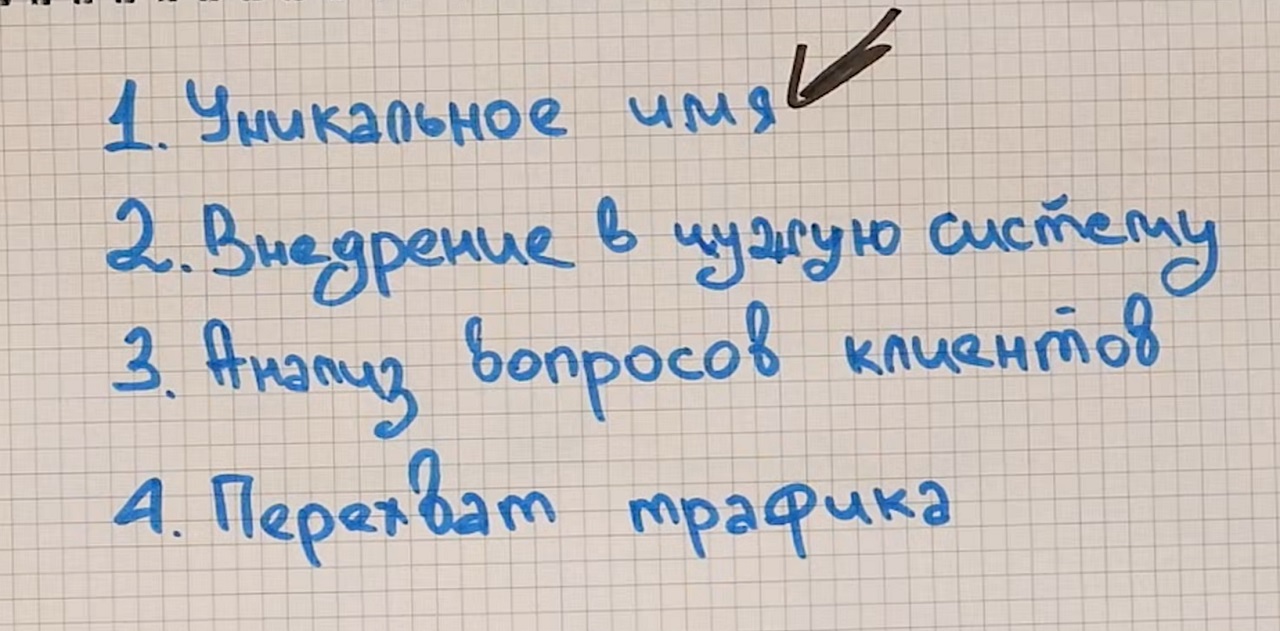 1. Уникальное имя
2. Внедрение в чужую систему
3. Анализ вопросов клиентов
4. Перехват трафика